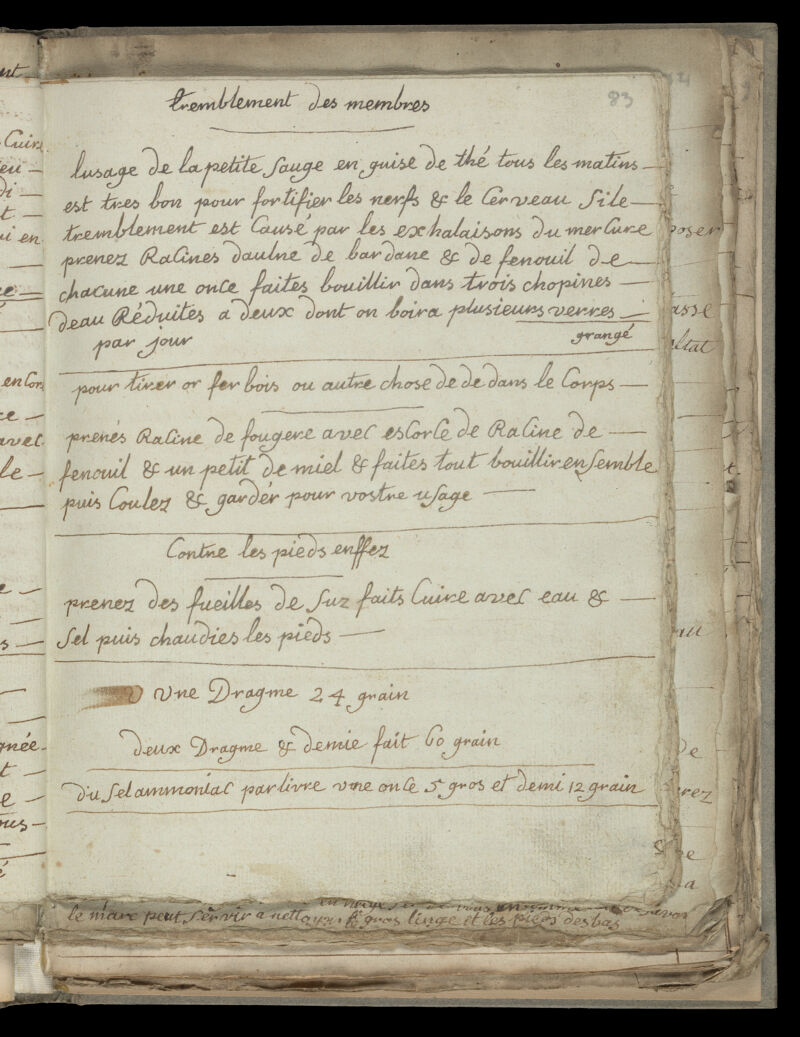 83
tremblement des membres
lusage de la petite sauge en guise de thé tous les matins
est tres bon pour fortifier les nerfs & le Cerveau Sile
tremblement est Causé par les exhalaisons du mercure
prenez Racines daulne de bardane & de fenouil de
chacune une once faites bouillir dans trois chopines
deau Réduites a deux dont on boira plusieurs verres
par jour
grangé
pour tirer or fer bois ou autre chose de de dans le Corps
prenés Racine de fougere avec escorce de Racine de
fenouil & un petit de miel & faites tout bouillir ensemble
puis Coulez & gardér pour vostre usage
Contre les pieds enffez
prenez des fueilles de Suz faits Cuire avec eau &
Sel puis chaudies les pieds
vne Dragme 24 grain
deux Dragme & demie fait 60 grain
du Sel ammoniac par livre vne once 5 gros et demi 12 grain
le marc peut servir a nettoyer le gros linge et les pieds des bas